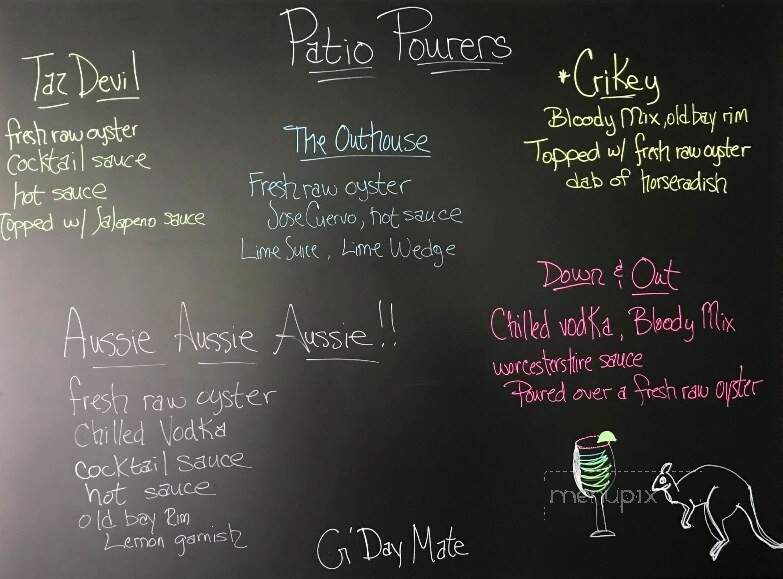 Patio Pourers
Taz Devil
fresh raw oyster
cocktail sauce
hot sauce
Topped w/ Jalapeno sauce
The Outhouse
Fresh raw oyster
Jose Cuervo, hot sauce
Lime Suice, Lime Wedge
*Crikey
Bloody Mix, old bay rim
Topped w/ fresh raw oyster
dab of horseradish
Aussie Aussie Aussie!!
fresh raw oyster
Chilled Vodka
cocktail sauce
hot sauce
old bay Rim
Lemon garnish
Down & Out
Chilled vodka, Bloody Mix
worcestershire sauce
Poured over a fresh raw oyster
menupix
G'Day Mate